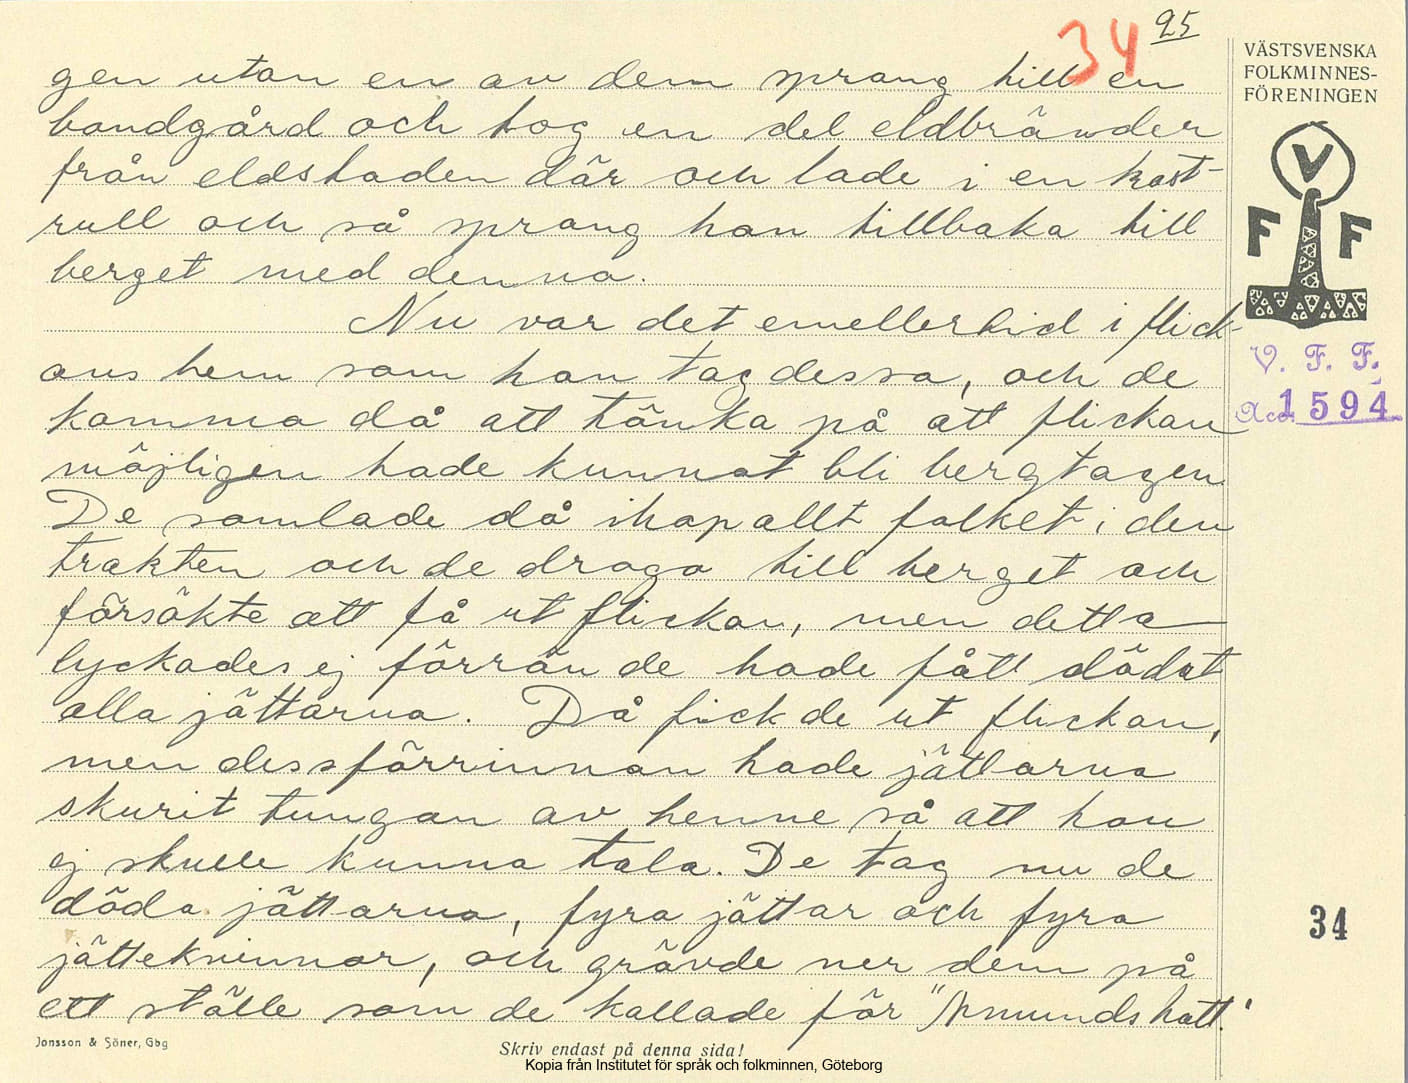 34 25
VÄSTSVENSKA
FOLKMINNES-
FÖRENINGEN
V
F F
V. F. F.
Acc. 1594
gen utan en av dem sprang till en
bondgård och tog en del eldbränder
från eldstaden där och lade i en kast-
rull och så sprang han tillbaka till
berget med denna.
Nu var det emellertid i flick-
ans hem som han tog dessa, och de
kommo då att tänka på att flickan
möjligen hade kunnat bli bergtagen
De samlade då ihop allt folket i den
trakten och de drogo till berget och
försökte att få ut flickan, men detta
lyckades ej förrän de hade fått dödat
alla jättarna. Då fick de ut flickan,
men dessförinnan hade jättarna
skurit tungan av henne så att hon
ej skulle kunna tala. De tog nu de
döda jättarna, fyra jättar och fyra
jättekvinnor, och grävde ner dem på
ett ställe som de kallade för
34
Jonsson & Söner, Gbg
Skriv endast på denna sida!
Kopia från Institutet för språk och folkminnen, Göteborg